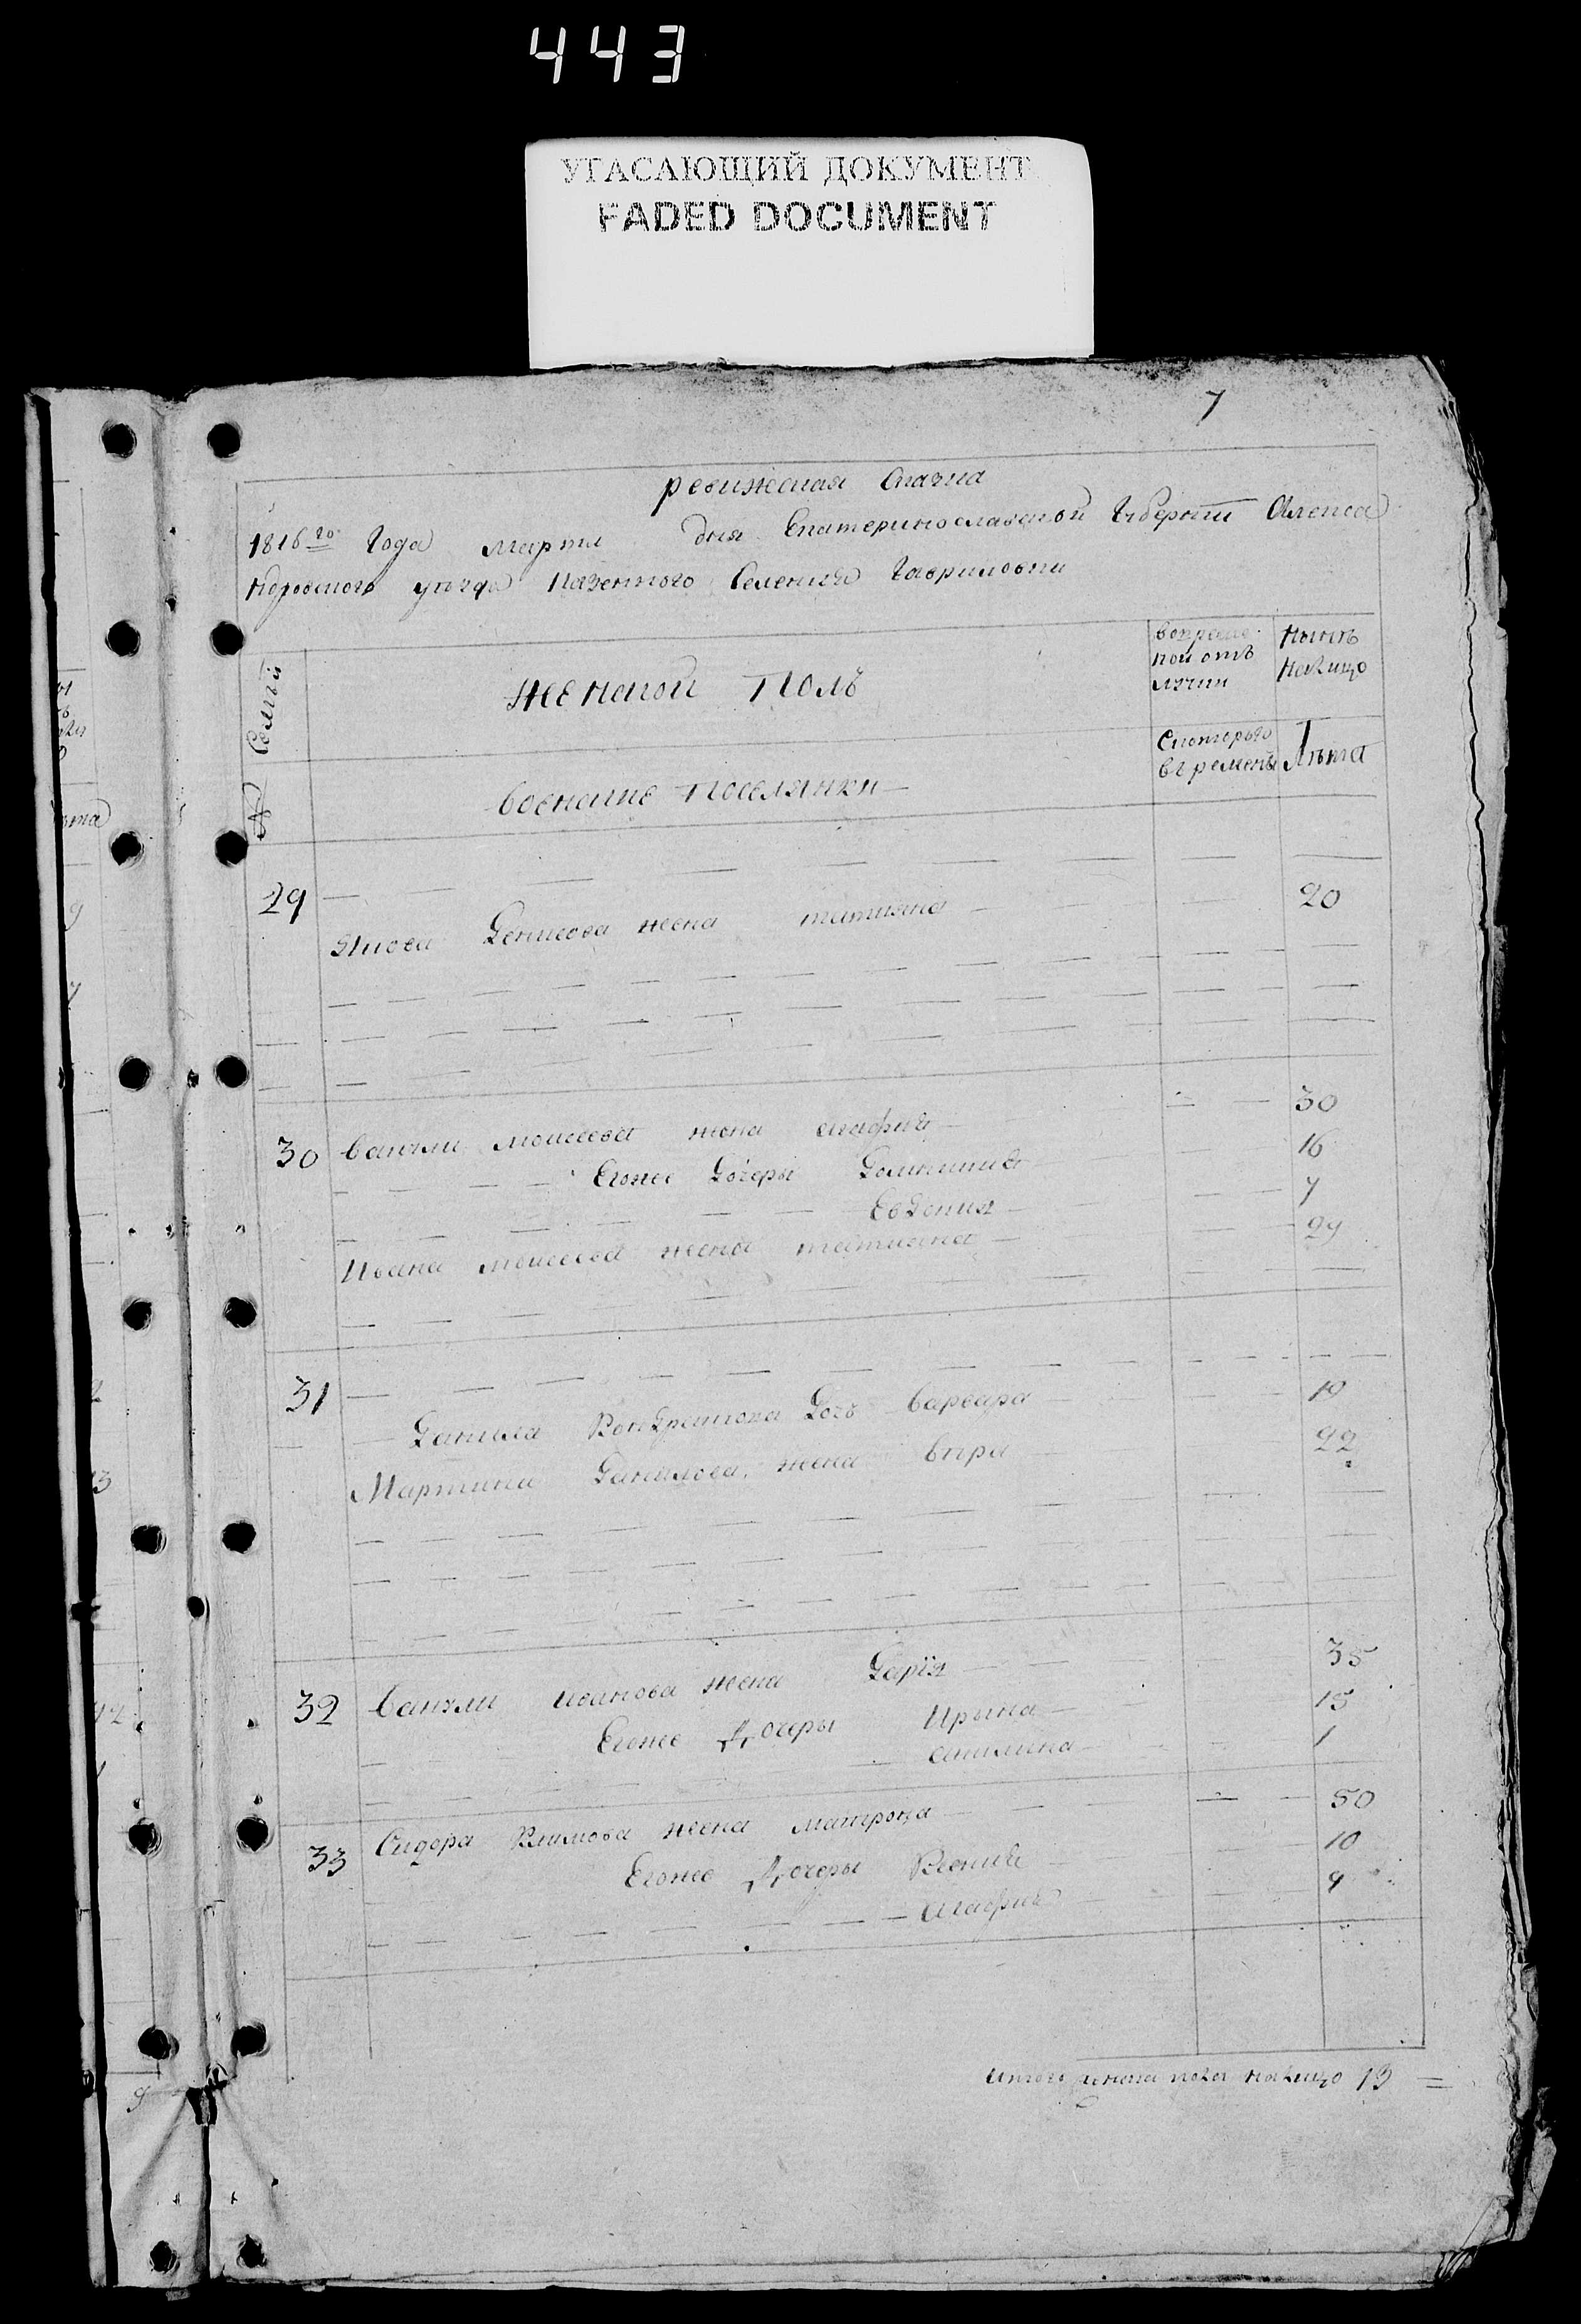 443
УГАСАЮЩИЙ ДОКУМЕНТ
FADED DOCUMENT
7
ревижская Скаска
1816го Года Марта дня Екатеринославской Губерніи Алекса
ндровского уезда Казенного Селения Гавриловки
№ Семьи
женской Полъ
вовреме
ной отъ
лучки
Нынѣ
налицо
военные Поселянки
Скоторого
времены
Лѣта
29
Якова Денисова жена татияна 20
30 Василия Моисеева жена агафия 30
Егоже Дочеры Домникия 16
Евдокия 7
Ивана Моисеева жена татияна 29
31
Данила Кондратова Дочь варвара 19
Мартина Данилова жена вѣра 22
32 Василия иванова жена Дарія 35
Егоже Дочеры Ирина 15
акилина 1
33 Сидора Климова жена матрона 50
Егоже Дочеры Ксения 10
агафия 9
Итого женска пола налицо 13 =